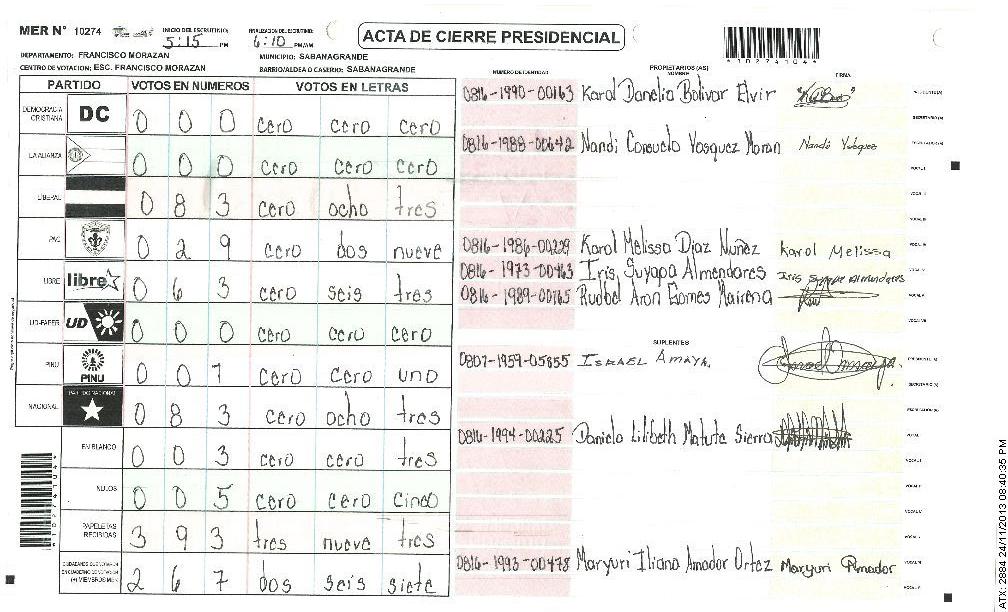 MER N° 10274
INICIO DEL ESCRUTINIO: 5:15 PM
FINALIZACION DEL ESCRUTINIO: 6:10 PM/AM
ACTA DE CIERRE PRESIDENCIAL
*10274104*
DEPARTAMENTO: FRANCISCO MORAZAN
MUNICIPIO: SABANAGRANDE
CENTRO DE VOTACION: ESC. FRANCISCO MORAZAN
BARRIO/ALDEA O CASERIO: SABANAGRANDE
PARTIDO VOTOS EN NUMEROS VOTOS EN LETRAS
DEMOCRACIA CRISTIANA DC 0 0 0 cero cero cero
LA ALIANZA 0 0 0 cero cero cero
LIBERAL 0 8 3 cero ocho tres
PAC 0 2 9 cero dos nueve
LIBRE libre 0 6 3 cero seis tres
UD-FAPER UD 0 0 0 cero cero cero
PINU PINU 0 0 1 cero cero uno
NACIONAL PARTIDO NACIONAL 0 8 3 cero ocho tres
EN BLANCO 0 0 3 cero cero tres
NULOS 0 0 5 cero cero cinco
PAPELETAS RECIBIDAS 3 9 3 tres nueve tres
(+) MIEMBROS MER 2 6 7 dos seis siete
NUMERO DE IDENTIDAD PROPIETARIOS (AS) NOMBRE FIRMA
0816-1990-00163 Karol Danelia Bolivar Elvir
SECRETARIO (A)
0816-1988-00642 Nandi Consuelo Vasquez Moran
0816-1986-00229 Karol Melissa Diaz Nuñez Karol Melissa
0816-1973-00463 Iris, Suyapa Almendares Iris Suyapa Almendares
0816-1989-00765 Rudbel Aron Gomes Mairena
SUPLENTES
0807-1959-05855 ISRAEL AMAYA.
SECRETARIO (A)
0816-1994-00225 Daniela Lilibeth Matute Sierra
0816-1993-00478 Maryuri Iliana Amador Ortez Maryuri Amador
ATX: 2984 24/11/2013 08:40:35 PM